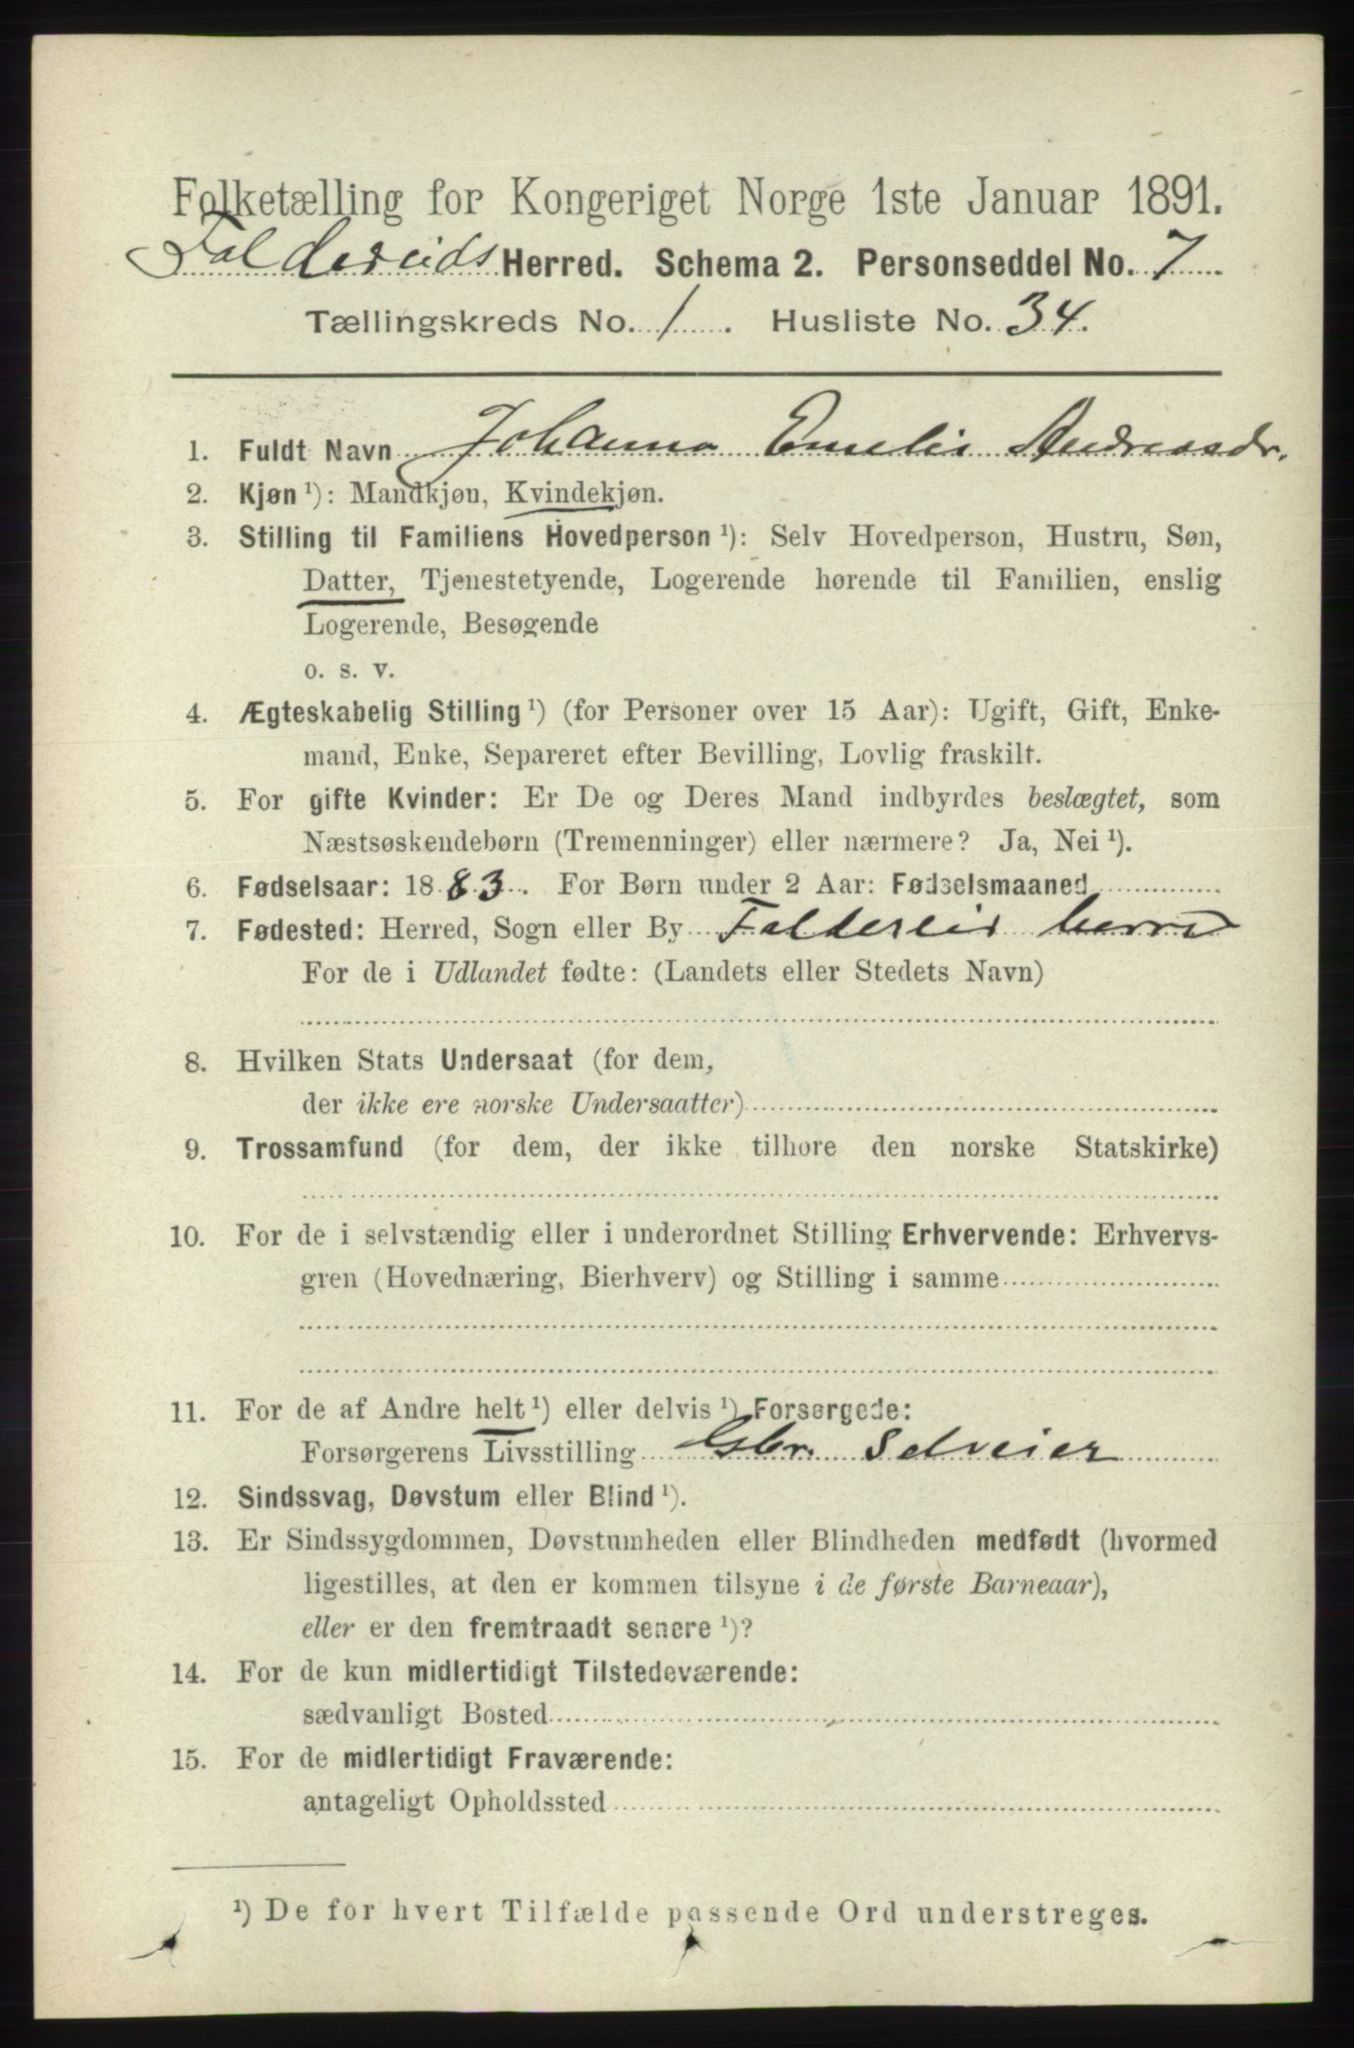 Folketælling for Kongeriget Norge 1ste Januar 1891.
Foldereids Herred. Schema 2. Personseddel No. 7
Tællingskreds No. 1. Husliste No. 34.
1. Fuldt Navn Johanna Emelie Andreasdr.
2. Kjøn ¹): Mandkjøn, Kvindekjøn.
3. Stilling til Familiens Hovedperson ¹): Selv Hovedperson, Hustru, Søn,
Datter, Tjenestetyende, Logerende hørende til Familien, enslig
Logerende, Besøgende
o. s. v.
4. Ægteskabelig Stilling ¹) (for Personer over 15 Aar): Ugift, Gift, Enke-
mand, Enke, Separeret efter Bevilling, Lovlig fraskilt.
5. For gifte Kvinder: Er De og Deres Mand indbyrdes beslægtet, som
Næstsøskendebørn (Tremenninger) eller nærmere? Ja, Nei ¹).
6. Fødselsaar: 1883. For Børn under 2 Aar: Fødselsmaaned
7. Fødested: Herred, Sogn eller By Foldereid herred
For de i Udlandet fødte: (Landets eller Stedets Navn)
8. Hvilken Stats Undersaat (for dem,
der ikke ere norske Undersaatter)
9. Trossamfund (for dem, der ikke tilhøre den norske Statskirke)
10. For de i selvstændig eller i underordnet Stilling Erhvervende: Erhvervs-
gren (Hovednæring, Bierhverv) og Stilling i samme
11. For de af Andre helt ¹) eller delvis ¹) Forsørgede:
Forsørgerens Livsstilling Gbr. Selveier
12. Sindssvag, Døvstum eller Blind ¹).
13. Er Sindssygdommen, Døvstumheden eller Blindheden medfødt (hvormed
ligestilles, at den er kommen tilsyne i de første Barneaar),
eller er den fremtraadt senere ¹)?
14. For de kun midlertidigt Tilstedeværende:
sædvanligt Bosted
15. For de midlertidigt Fraværende:
antageligt Opholdssted
¹) De for hvert Tilfælde passende Ord understreges.